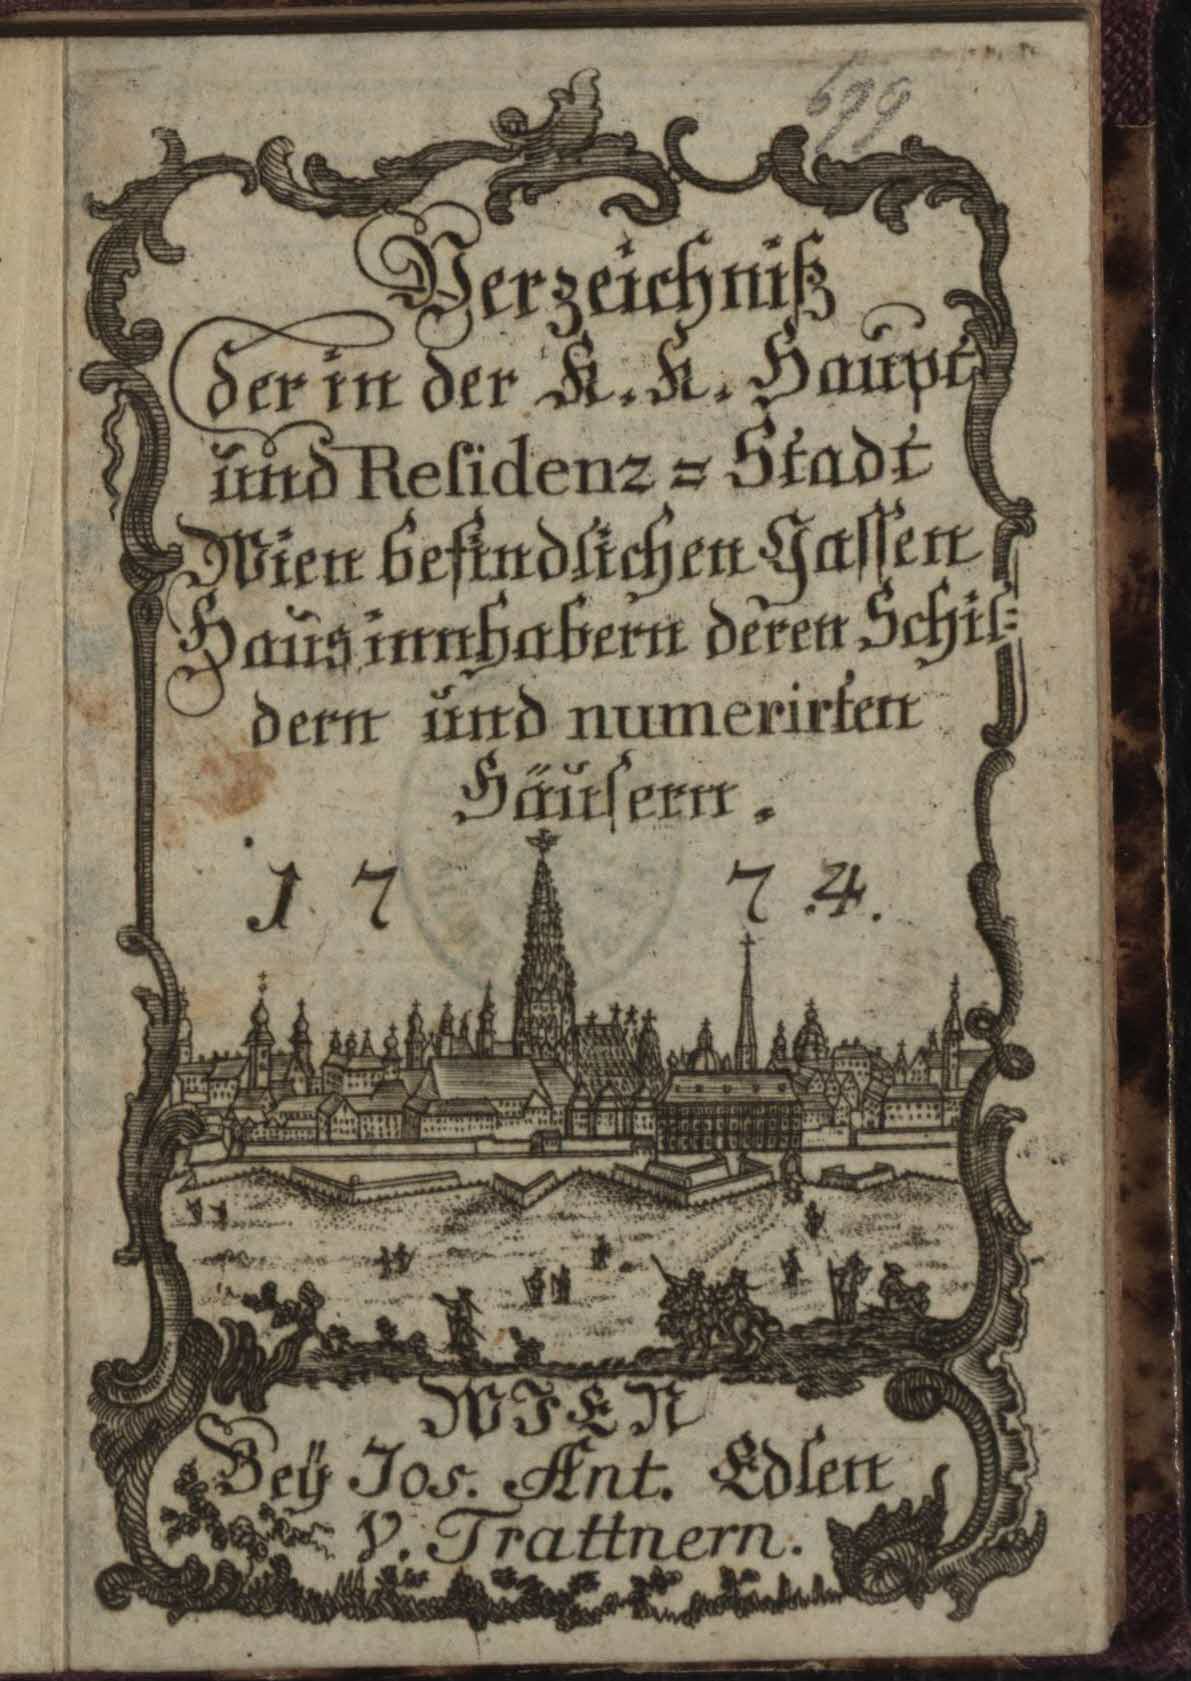 699
Verzeichniß
der in der K. K. Haupt
und Residenz = Stadt
Wien befindlichen Gassen
Haus innhabern deren Schil=
dern und numerirten
Häusern.
17 74.
WIEN
Beÿ Jos. Ant. Edlen
V. Trattnern.